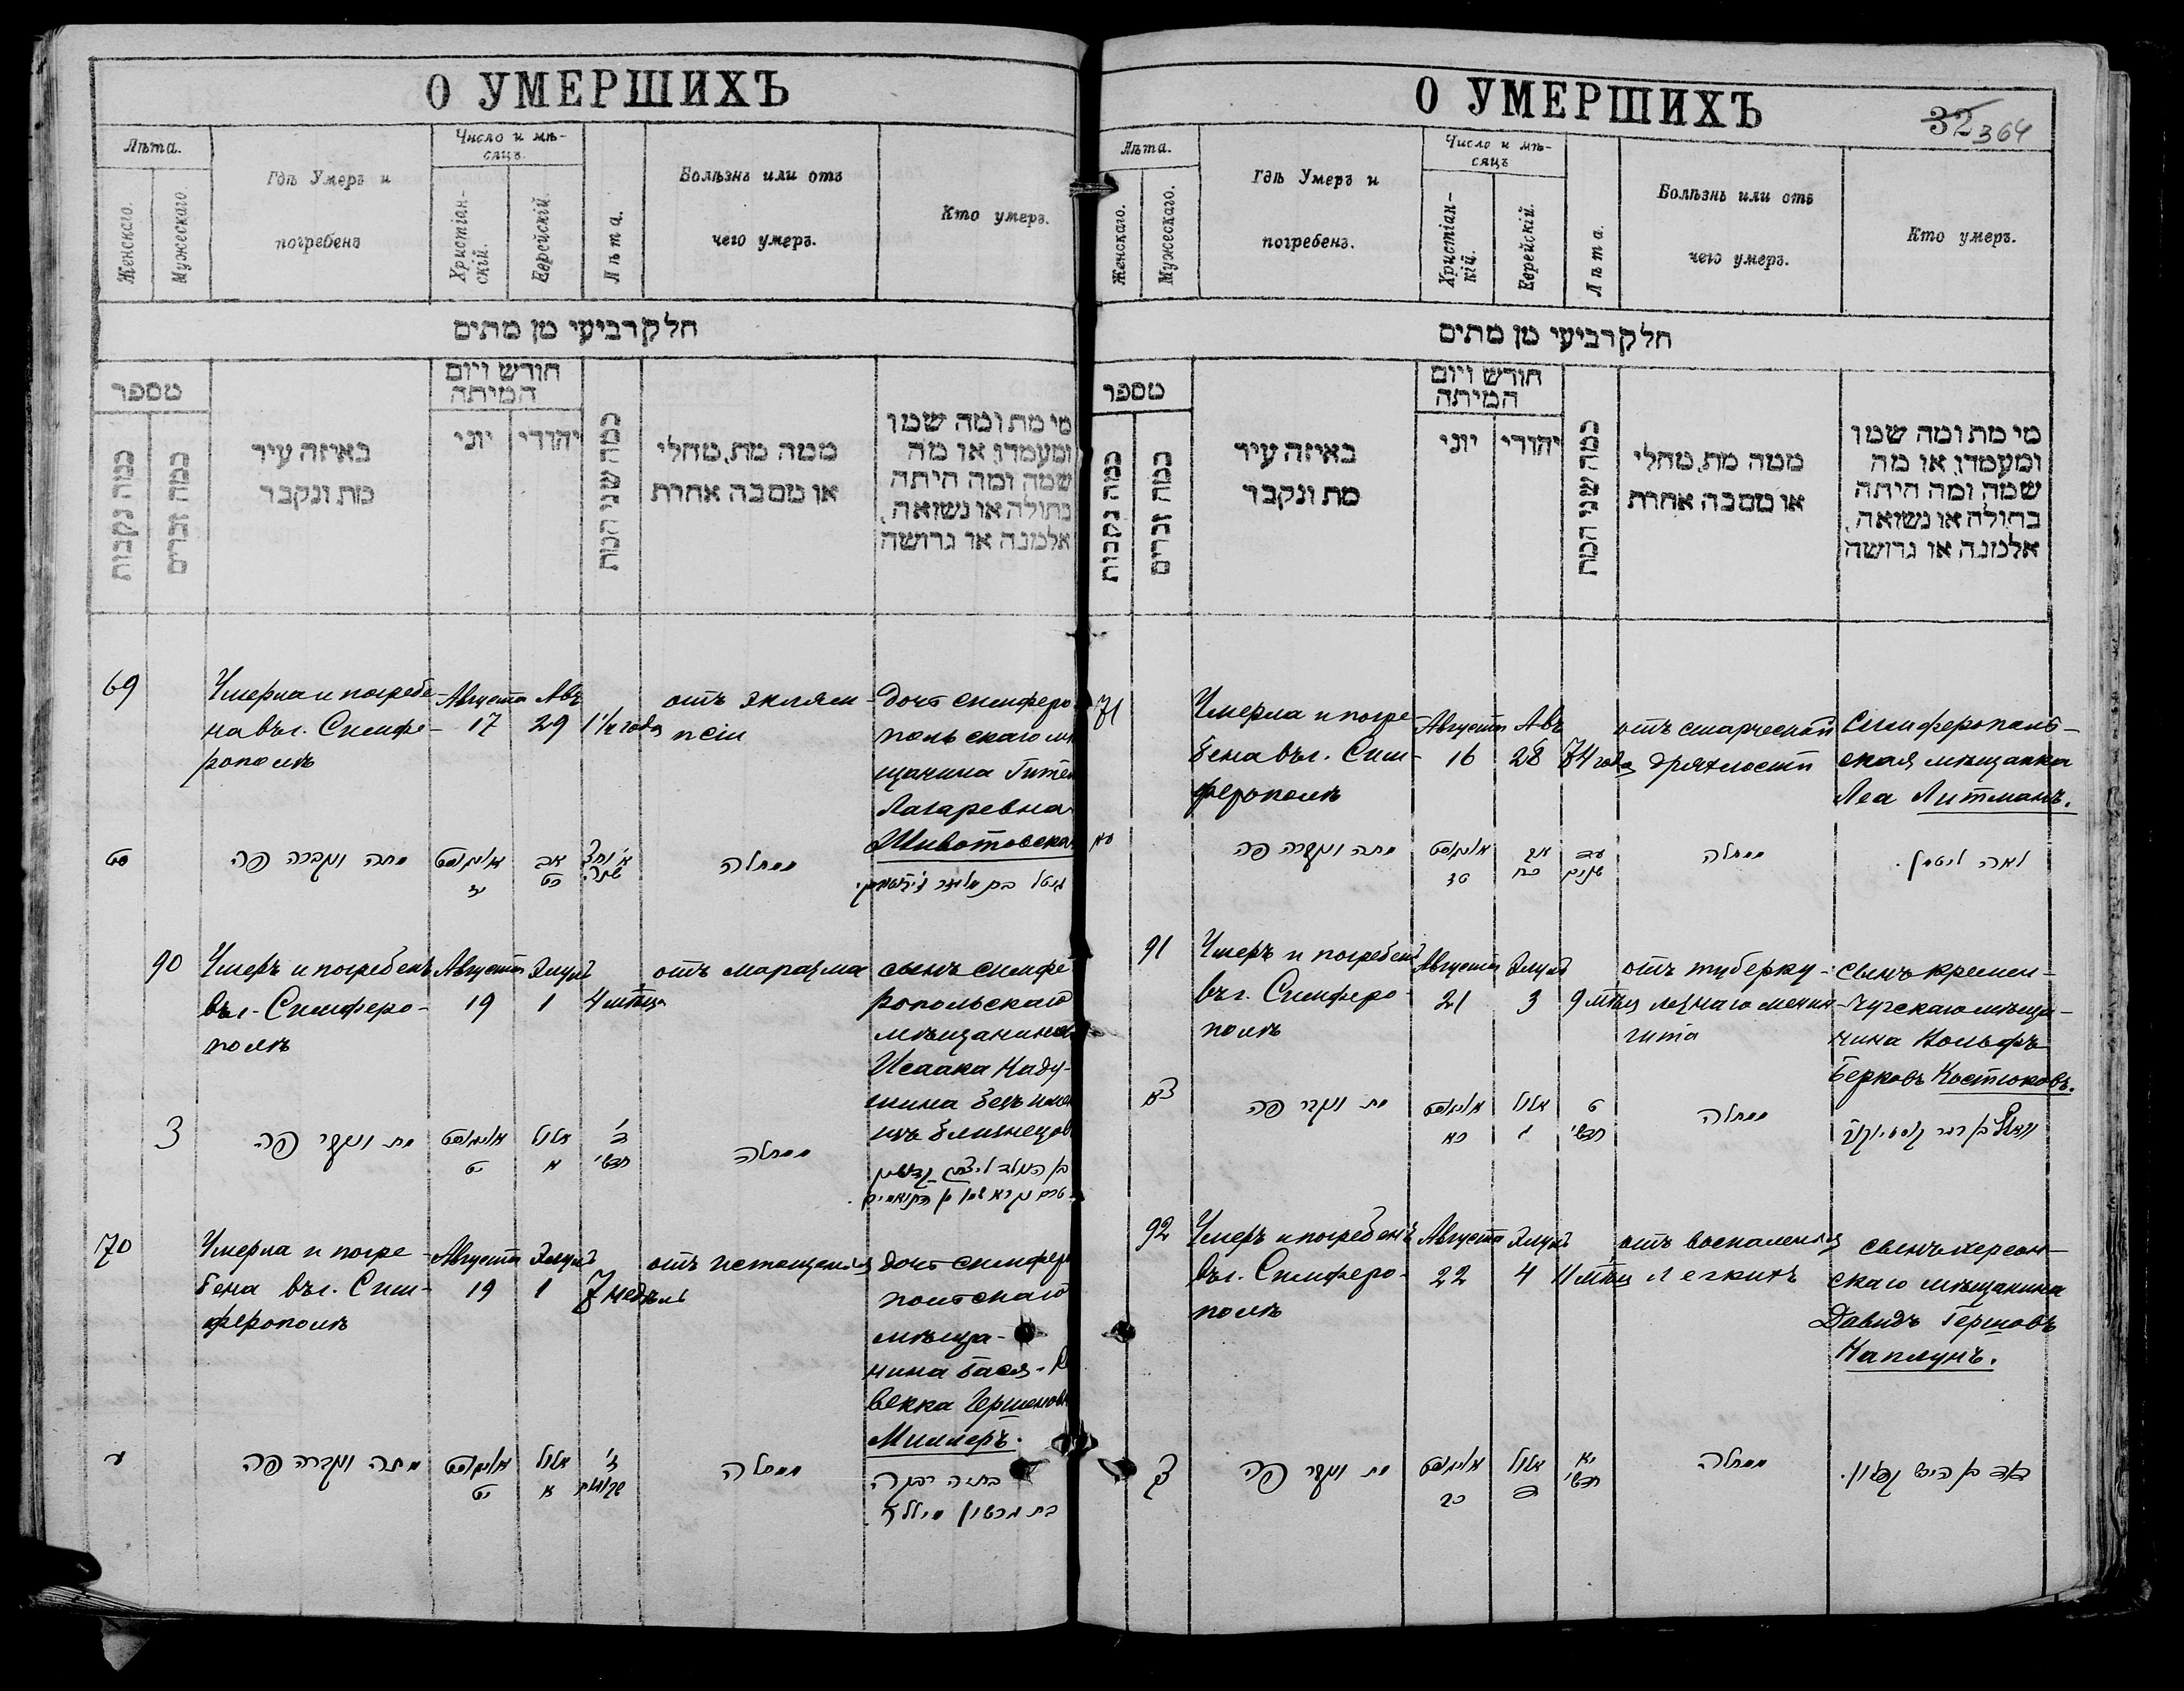 О УМЕРШИХЪ
Лѣта.
Женскаго.
Мужескаго
Гдѣ Умеръ и
погребенъ
Число и мѣ-
сяцъ.
Христіан-
скій.
Еврейскій.
Лѣта.
Болѣзнь или отъ
чего умеръ.
Кто умеръ.
חלק רביעי מן מתים
מספר
כמה נקבות
כמה זכרים
באיזה עיר
מת ונקבר
חודש ויום
המיתה
יוני
יהודי
כמה שני המת
ממה מת, מחלי
או מסבה אחרת
מי מת ומה שמו
ומעמדו, או מה
שמה ומה היתה
בתולה או נשואה,
אלמנה או גרושה
69
Умерла и погребе-
на въ г. Симфе-
рополѣ
Августа
17
Авъ
29
1 1/2 года
отъ эклям-
псіи
дочь симферо
польскаго мѣ
щанина Гитель
Лазаревна
Шивотовская
סט
מתה ונקברה פה
אויגוסט
יז
אב
כט
מחלה
90
Умеръ и погребенъ
въ г. Симферо-
полѣ
Августа
19
Элулъ
1
4 мѣсяца
отъ маразма
сынъ симфе
ропольскаго
мѣщанина
Исаака Каду-
шина безъ имен
изъ близнецовъ
צ
מת ונקבר פה
אויגוסט
יט
אלול
א
ד'
חדשי'
מחלה
70
Умерла и погре-
бена въ г. Сим-
ферополѣ
Августа
19
Элулъ
1
7 недѣль
отъ истощенія
дочь симферо
польскаго
мѣща-
нина Бася-Р
векка Гершоновн
Миллеръ.
ע
מתה ונקברה פה
אויגוסט
יט
אלול
א
ז'
שבועות
מחלה
בתיה רבקה
בת גרשון מיללער
О УМЕРШИХЪ
32 364
Лѣта.
Женскаго.
Мужескаго.
Гдѣ Умеръ и
погребенъ.
Число и мѣ-
сяцъ
Христіан-
кій.
Еврейскій.
Лѣта.
Болѣзнь или отъ
чего умеръ.
Кто умеръ.
חלק רביעי מן מתים
מספר
כמה נקבות
כמה זכרים
באיזה עיר
מת ונקבר
חודש ויום
המיתה
יוני
יהודי
כמה שני המת
ממה מת, מחלי
או מסבה אחרת
מי מת ומה שמו
ומעמדו, או מה
שמה ומה היתה
בתולה או נשואה,
אלמנה או גרושה
71
Умерла и погре-
бена въ г. Сим-
ферополѣ
Августа
16
Авъ
28
74 года
отъ старческой
дряхлости
Симферополь-
ская мѣщанка
Леа Литманъ.
עא
מתה ונקברה פה
אויגוסט
טז
אב
כח
עד
שנים
מחלה
לאה ליטמן.
91
Умеръ и погребенъ
въ г. Симферо-
полѣ
Августа
21
Элулъ
3
9 мѣсяц
отъ туберку-
лезнаго менин-
гита
сынъ кремен-
чугскаго мѣща-
нина Вольфъ
Берковъ Костюковъ.
צא
מת ונקבר פה
אויגוסט
כא
אלול
ג
ט
חדשי'
מחלה
92
Умеръ и погребенъ
въ г. Симферо-
полѣ
Августа
22
Элулъ
4
11 мѣсяц
отъ воспаленія
легкихъ
сынъ херсон-
скаго мѣщанина
Давидъ Гершовъ
Каплунъ.
צב
מת ונקבר פה
אויגוסט
כב
אלול
ד
יא
חדשי'
מחלה
דוד בן הירש קפלון.